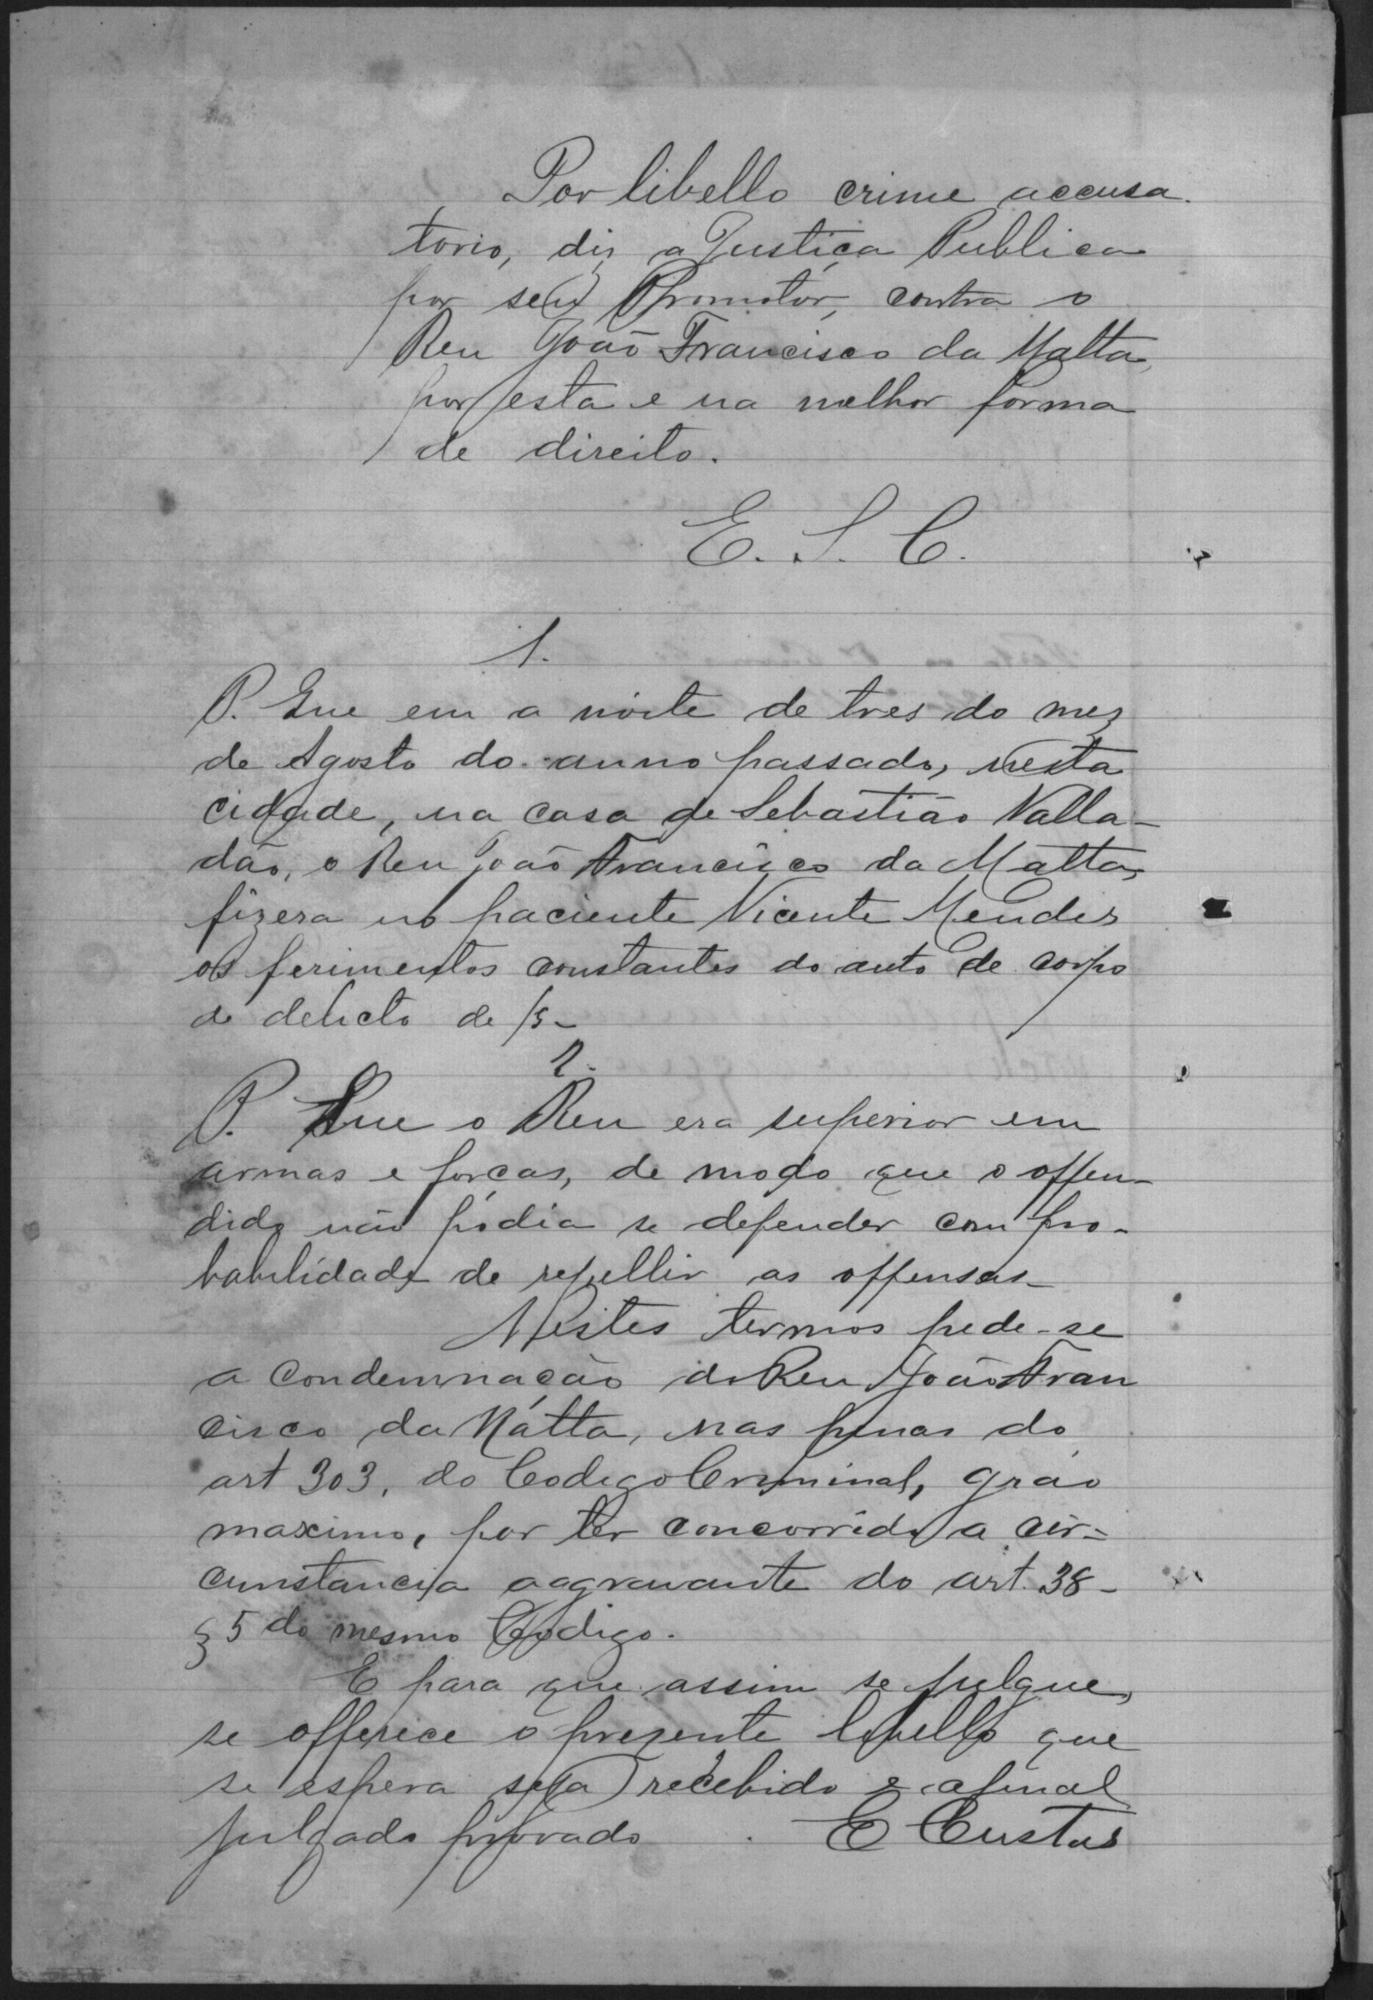 Por libello crime accusa-
torio, diz a Justiça Publica
por seu Promotor, contra o
Reu João Francisco da Matta,
por esta e na melhor forma
de direito.
E. S. C.
1.
P. Que em a noite de tres do mez
de Agosto do anno passado, nesta
cidade, na casa de Sebastião Valla-
dão, o Reu João Francisco da Matta,
fizera no paciente Vicente Mendes
os ferimentos constantes do auto de corpo
de delicto de fs-
2.
P. Que o Reu era superior em
armas e forças, de modo que o offen-
dido não pódia se defender com pro-
babilidade de repellir as offensas-
Nestes termos pede-se
a condemnação do Reu João Fran
cisco da Matta, nas penas do
art 303, do Codigo Criminal, gráo
maximo, por ter concorrido a cir-
cunstancia aggravante do art. 38-
§ 5 do mesmo Codigo.
E para que assim se julgue,
se offerece o prezente libello que
se espera seja recebido e afinal
julgado provado. E Custas